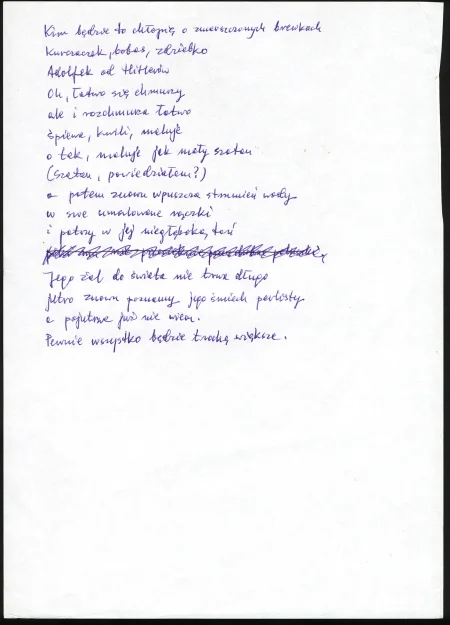 Kim będzie to chłopię o zmarszczonych brewkach
Kurczaczek, bobas, ździebko
Adolfek od Hitlerów
Oh, łatwo się chmurzy
ale i rozchmurza łatwo
śpiewa, kuśli, maluje
o tak, maluje jak mały szatan
(szatan, powiedziałem?)
a potem znowu wpuszcza strumień wody
w swe umalowane rączki
i patrzy w jej niegłęboką toń
Jego żal do świata nie trwa długo
jutro znowu poznamy jego śmiech perlisty
a pojutrze już nie wiem.
Pewnie wszystko będzie trochę większe.